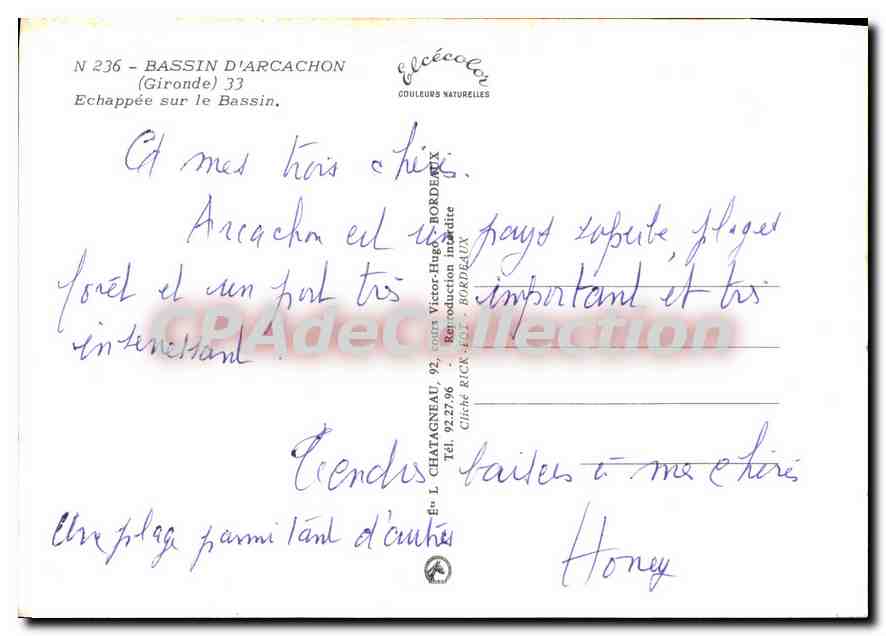 N 236 - BASSIN D'ARCACHON
(Gironde) 33
Echappée sur le Bassin.
Elcécolor
COULEURS NATURELLES
A mes trois chéris.
Arcachon est un pays superbe, plages
forêt et un port très important et très
interessant.
Tendres baisers à mes chéris
Honey
Une plage parmi tant d'autres
Édⁿˢ L CHATAGNEAU, 92, cours Victor-Hugo, BORDEAUX
Tél. 92.27.96 - Reproduction interdite
Cliché RICK-LOT - BORDEAUX
CPAdeCollection